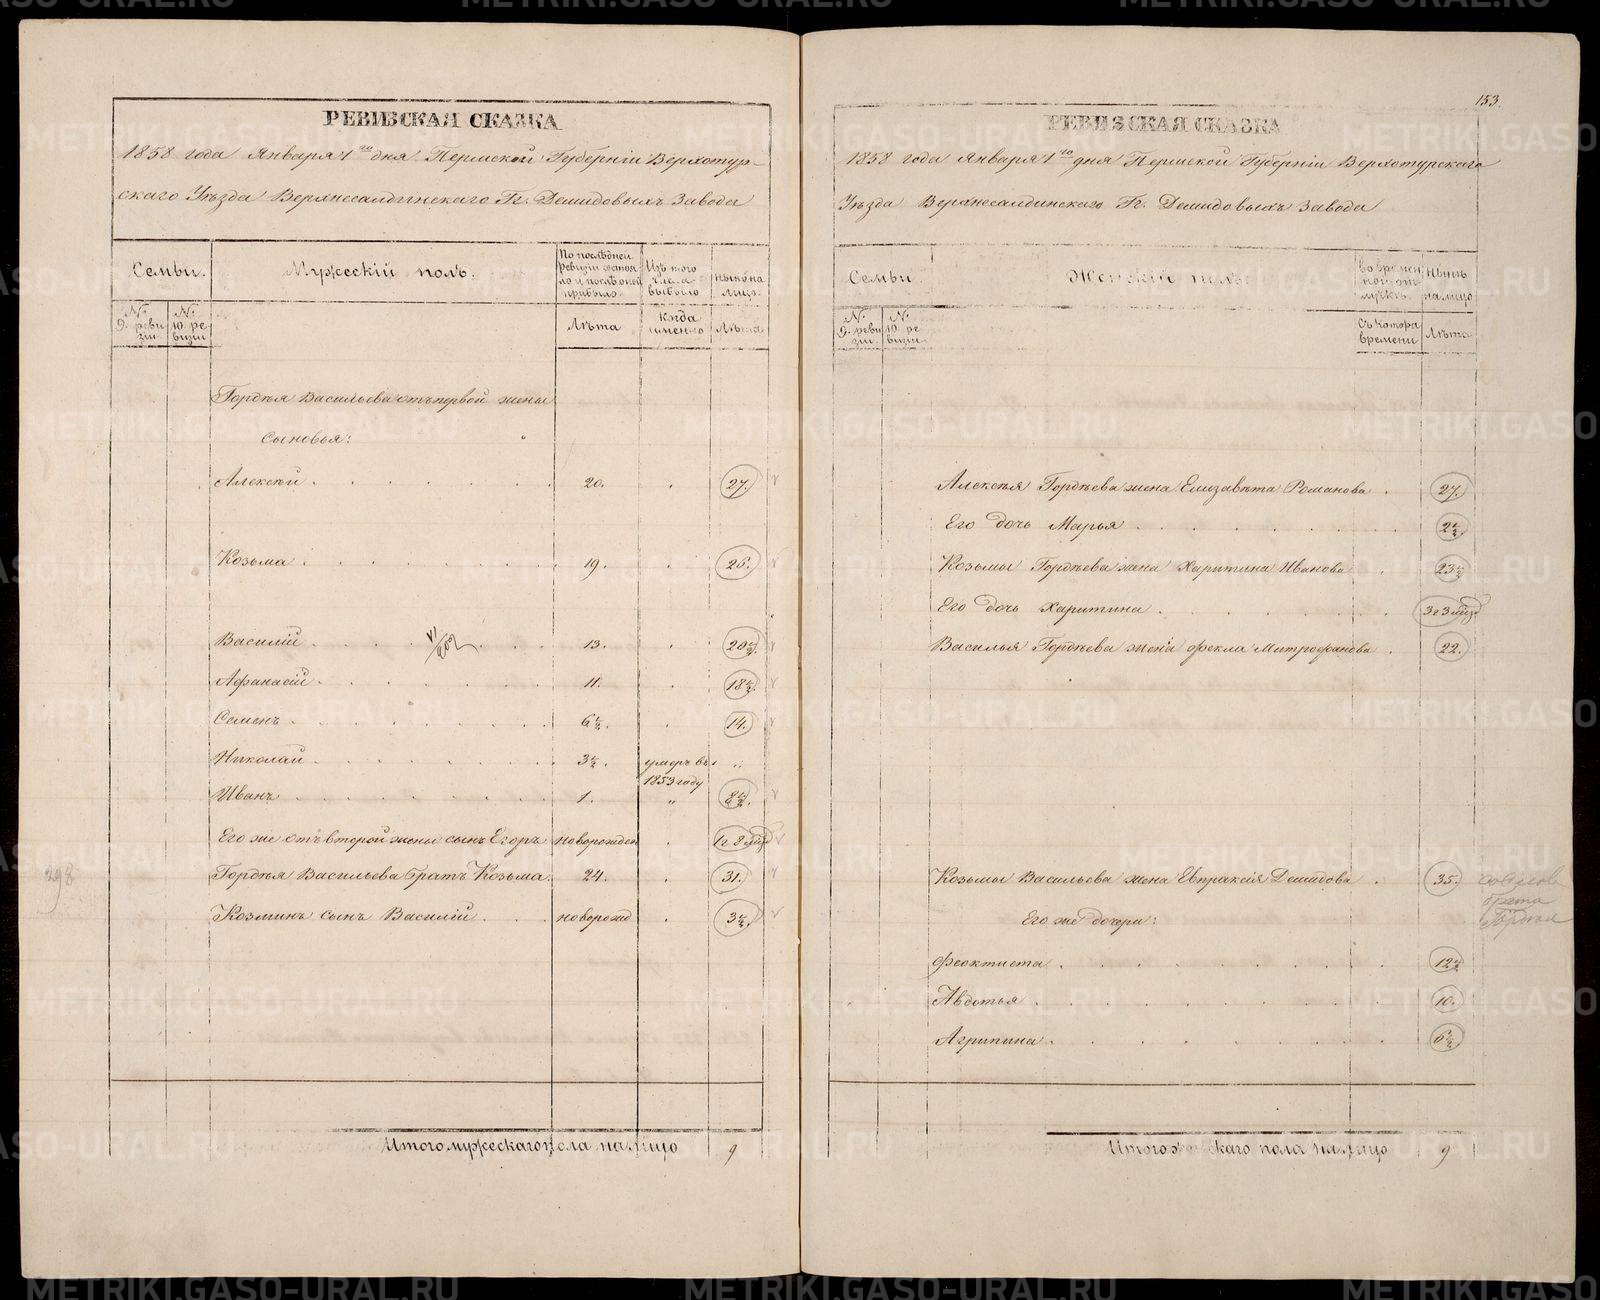 РЕВИЗСКАЯ СКАЗКА
1858 года Января 1го дня Пермской Губерніи Верхотур-
скаго Уѣзда Верхнесалдинскаго Гг. Демидовыхъ Завода
Семьи.
Мужескій полъ.
По послѣдней ревизіи состояло и послѣ оной прибыло
Изъ того числа выбыло
Нынѣ на лицо.
№ 9. ревизіи.
№ 10. ревизіи
Лѣта
Когда именно
Лѣта
Гордѣя Васильева отъ первой жены
сыновья:
Алексѣй 20. 27.
Козьма 19. 26.
Василій 13. 20½.
Афанасій 11. 18½.
Семенъ 6½. 14.
Николай 3½. умеръ въ 1853 году „
Иванъ 1. „ 8½.
Его же отъ второй жены сынъ Егоръ новорожден 1 г 8 мѣз
Гордѣя Васильева братъ Козьма. 24. 31.
Козминъ сынъ Василій новорожд 3½
Итого мужескаго пола на лицо 9
298
153.
РЕВИЗСКАЯ СКАЗКА
1858 года Января 1го дня Пермской Губерніи Верхотурскаго
Уѣзда Верхнесалдинскаго Гг. Демидовыхъ Завода
Семьи
Женскій полъ
Во времен ной отлучкѣ.
Нынѣ на лицо
№ 9. ревизіи.
№ 10. ревизіи.
Съ котора времени
Лѣта
Алексѣя Гордѣева жена Елизавѣта Романова 27.
Его дочь Марья 2½
Козьмы Гордѣева жена Харитина Иванова 23½
Его дочь Харитина 3 г 3 мѣз
Василья Гордѣева жена Фекла Митрофанова 22.
Козьмы Васильева жена Евпраксія Демидова 35.
брата
Гордея
Его же дочери:
Феоктиста 12½
Авдотья 10.
Агрипина 6½
Итого женскаго пола на лицо 9
METRIKI.GASO-URAL.RU